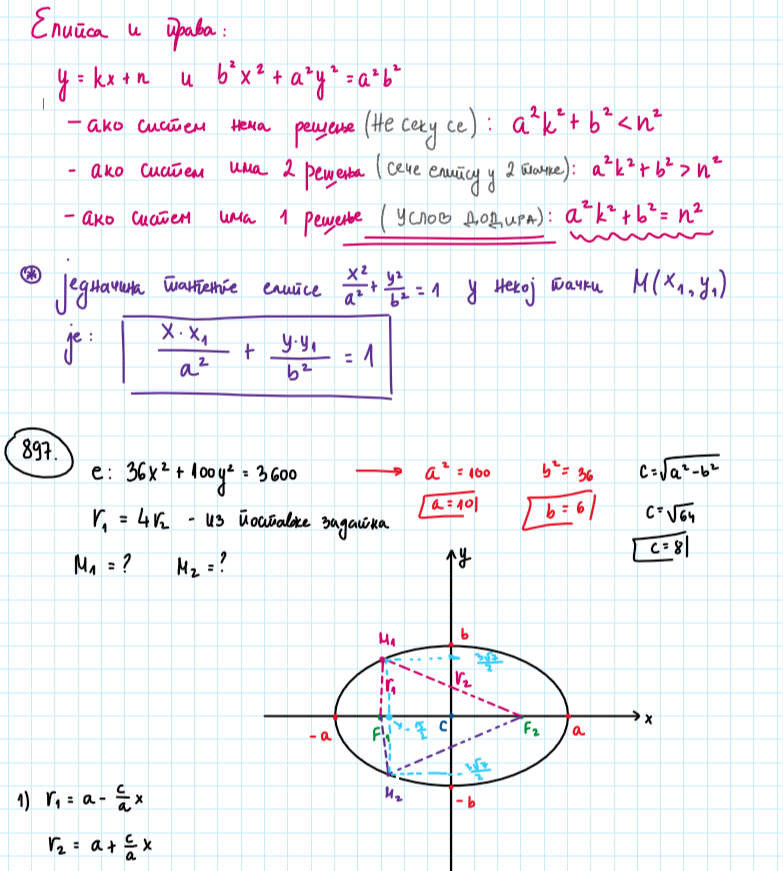 Елипса и права:
y = kx + n и b²x² + a²y² = a²b²
- ако систем нема решење (Не секу се): a²k² + b² < n²
- ако систем има 2 решења (сече елипсу у 2 тачке): a²k² + b² > n²
- ако систем има 1 решење (УСЛОВ ДОДИРА): a²k² + b² = n²
* једначина тангенте елипсе x²/a² + y²/b² = 1 у некој тачки M(x₁, y₁)
је: x·x₁/a² + y·y₁/b² = 1
897.
e: 36x² + 100y² = 3600 → a² = 100 b² = 36 c = √a²-b²
a = 10 b = 6 c = √64
r₁ = 4r₂ - из поставке задатка
c = 8
M₁ = ? M₂ = ?
y
M₁ b 3√7/2
r₁ r₂
-a F₁ C F₂ a x
M₂ -b
1) r₁ = a - c/a x
r₂ = a + c/a x